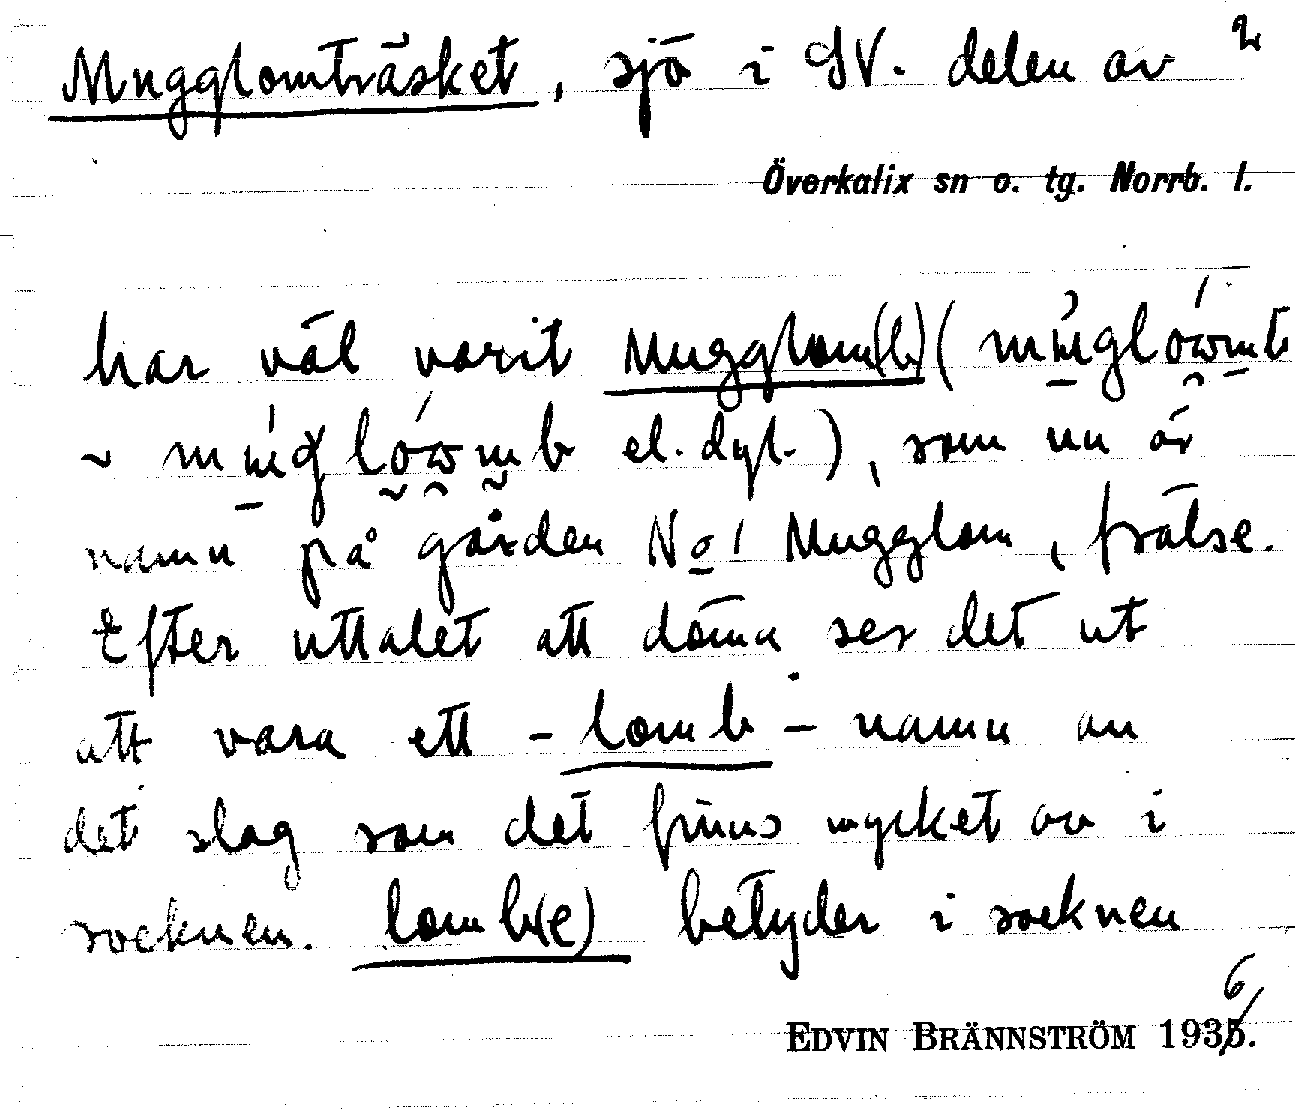 Mugglomträsket, sjö i SV. delen av 2
Överkalix sn o. tg. Norrb. l.
har väl varit Mugglom(b) (
el. dyl.), som nu är
namn på gården No 1 Mugglom, frälse.
Efter uttalet att döma ser det ut
att vara ett -lomb- namn av
det slag som det finns mycket av i
socknen. lomb(e) betyder i socknen
EDVIN BRÄNNSTRÖM 1936.